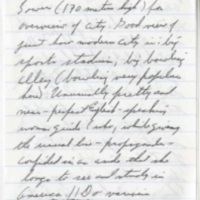 tower (190 meters high) for
overview of city. Good view of
just how modern city is: by
sports stadium, by bowling
alley (bowling very popular
here). Unusually pretty and
near-perfect English-speaking
woman guide (who, while giving
the usual line-propaganda-
confided in an aside that she
longs to see and study in
America!) Our